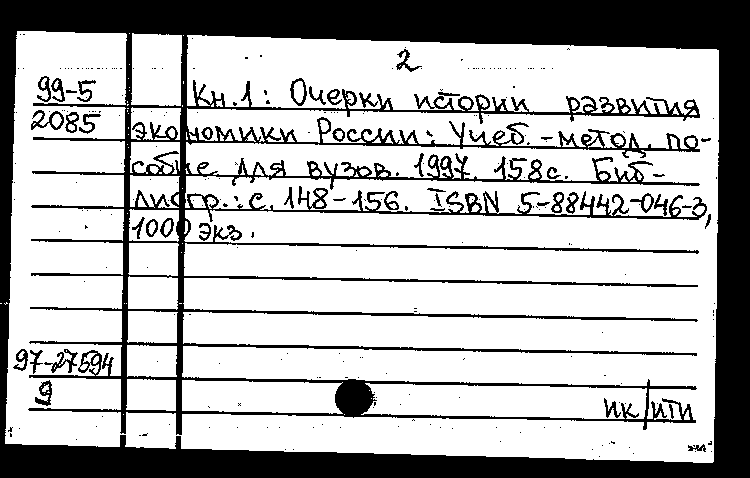 2
99-5
2085
Кн.1: Очерки истории развития
экономики России: Учеб.-метод. по-
собие для вузов. 1997. 158с. Биб-
лиогр.: с. 148-156. ISBN 5-88442-046-3,
1000 экз.
97-27594
9
ик/ити